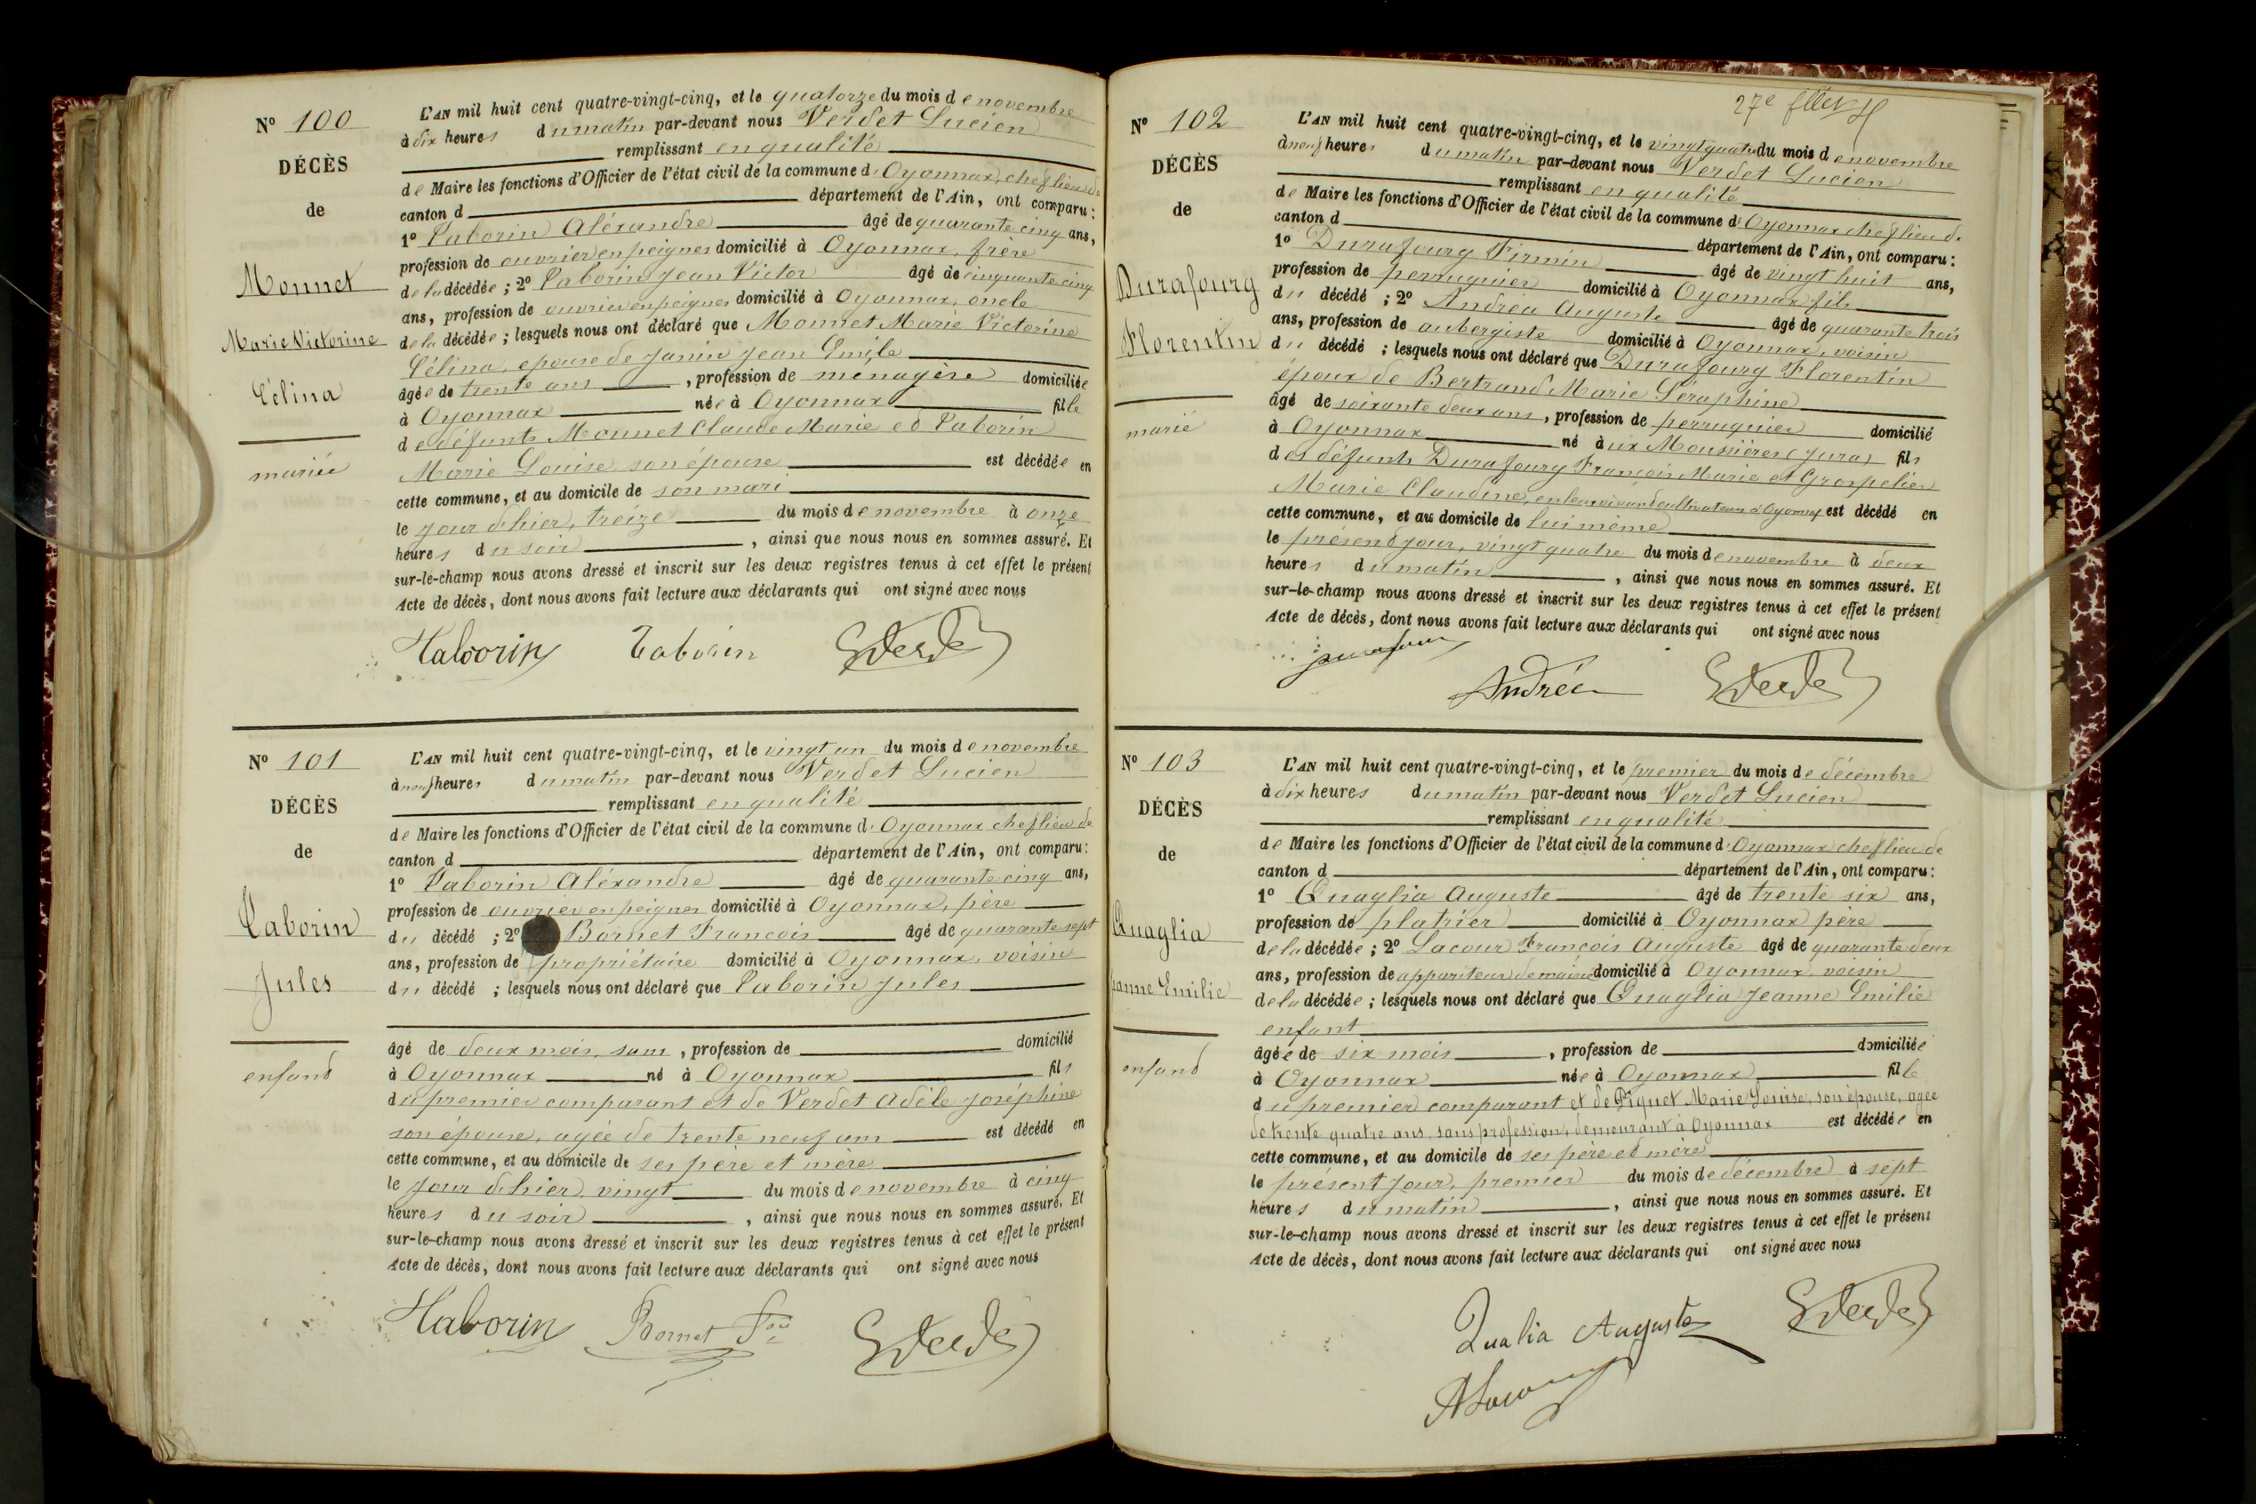 Nº 100
DÉCÈS
de
Monnet
Marie Victorine
Célina
mariée
L'AN mil huit cent quatre-vingt-cinq, et le quatorze du mois de novembre
à dix heures du matin par-devant nous Verdet Lucien
remplissant en qualité
de Maire les fonctions d'Officier de l'état civil de la commune d'Oyonnax, chef lieu de
canton d département de l'Ain, ont comparu :
1º Taborin Aléxandre âgé de quarante cinq ans,
profession de ouvrier en peignes domicilié à Oyonnax, frère
de la décédée ; 2º Taborin Jean Victor âgé de cinquante cinq
ans, profession de ouvrier en peignes domicilié à Oyonnax, oncle
de la décédée ; lesquels nous ont déclaré que Monnet Marie Victorine
Célina, épouse de Janin Jean Emile
âgée de trente ans, profession de ménagère domiciliée
à Oyonnax née à Oyonnax fille
de défunts Monnet Claude Marie et Taborin
Marie Louise son épouse est décédée en
cette commune, et au domicile de son mari
le jour d'hier, treize du mois de novembre à onze
heures du soir, ainsi que nous nous en sommes assuré. Et
sur-le-champ nous avons dressé et inscrit sur les deux registres tenus à cet effet le présent
Acte de décès, dont nous avons fait lecture aux déclarants qui ont signé avec nous
Taborin Taborin Verdet
Nº 101
DÉCÈS
de
Taborin
Jules
enfant
L'AN mil huit cent quatre-vingt-cinq, et le vingt un du mois de novembre
à neuf heures du matin par-devant nous Verdet Lucien
remplissant en qualité
de Maire les fonctions d'Officier de l'état civil de la commune d'Oyonnax chef lieu de
canton d département de l'Ain, ont comparu :
1º Taborin Aléxandre âgé de quarante cinq ans,
profession de ouvrier en peignes domicilié à Oyonnax, père
du décédé ; 2º Bornet François âgé de quarante sept
ans, profession de propriétaire domicilié à Oyonnax, voisin
du décédé ; lesquels nous ont déclaré que Taborin Jules
âgé de deux mois, sans, profession de domicilié
à Oyonnax né à Oyonnax fils
du premier comparant et de Verdet Adèle Joséphine
son épouse, agée de trente neuf ans est décédé en
cette commune, et au domicile de ses père et mère
le jour d'hier, vingt du mois de novembre à cinq
heures du soir, ainsi que nous nous en sommes assuré. Et
sur-le-champ nous avons dressé et inscrit sur les deux registres tenus à cet effet le présent
Acte de décès, dont nous avons fait lecture aux déclarants qui ont signé avec nous
Taborin Bornet Fois Verdet
27e
Nº 102
DÉCÈS
de
Durafourg
Florentin
marié
L'AN mil huit cent quatre-vingt-cinq, et le vingt quatre du mois de novembre
à neuf heures du matin par-devant nous Verdet Lucien
remplissant en qualité
de Maire les fonctions d'Officier de l'état civil de la commune d'Oyonnax chef lieu de
canton d département de l'Ain, ont comparu :
1º Durafourg Firmin âgé de vingt huit ans,
profession de perruquier domicilié à Oyonnax fils
du décédé ; 2º Andréa Auguste âgé de quarante trois
ans, profession de aubergiste domicilié à Oyonnax, voisin
du décédé ; lesquels nous ont déclaré que Durafourg Florentin
époux de Bertrand Marie Séraphine
âgé de soixante deux ans, profession de perruquier domicilié
à Oyonnax né à ux Moussières (Jura) fils
des défunts Durafourg François Marie et Grospelier
Marie Claudine, en leur vivant cultivateurs à Oyonnax est décédé en
cette commune, et au domicile de lui même
le présent jour, vingt quatre du mois de novembre à deux
heures du matin, ainsi que nous nous en sommes assuré. Et
sur-le-champ nous avons dressé et inscrit sur les deux registres tenus à cet effet le présent
Acte de décès, dont nous avons fait lecture aux déclarants qui ont signé avec nous
Andréa Verdet
Nº 103
DÉCÈS
de
Quaglia
Jeanne Emilie
enfant
L'AN mil huit cent quatre-vingt-cinq, et le premier du mois de décembre
à dix heures du matin par-devant nous Verdet Lucien
remplissant en qualité
de Maire les fonctions d'Officier de l'état civil de la commune d'Oyonnax chef lieu de
canton d département de l'Ain, ont comparu :
1º Quaglia Auguste âgé de trente six ans,
profession de platrier domicilié à Oyonnax père
de la décédée ; 2º Lacour François Auguste âgé de quarante deux
ans, profession de appariteur de mairie domicilié à Oyonnax, voisin
de la décédée ; lesquels nous ont déclaré que Quaglia Jeanne Emilie
enfant
âgée de six mois, profession de domiciliée
à Oyonnax née à Oyonnax fille
du premier comparant et de Piquet Marie Louise, son épouse, agée
de trente quatre ans, sans profession, demeurant à Oyonnax est décédée en
cette commune, et au domicile de ses père et mère
le présent jour, premier du mois de décembre à sept
heures du matin, ainsi que nous nous en sommes assuré. Et
sur-le-champ nous avons dressé et inscrit sur les deux registres tenus à cet effet le présent
Acte de décès, dont nous avons fait lecture aux déclarants qui ont signé avec nous
Qualia Auguste Verdet
ALacour